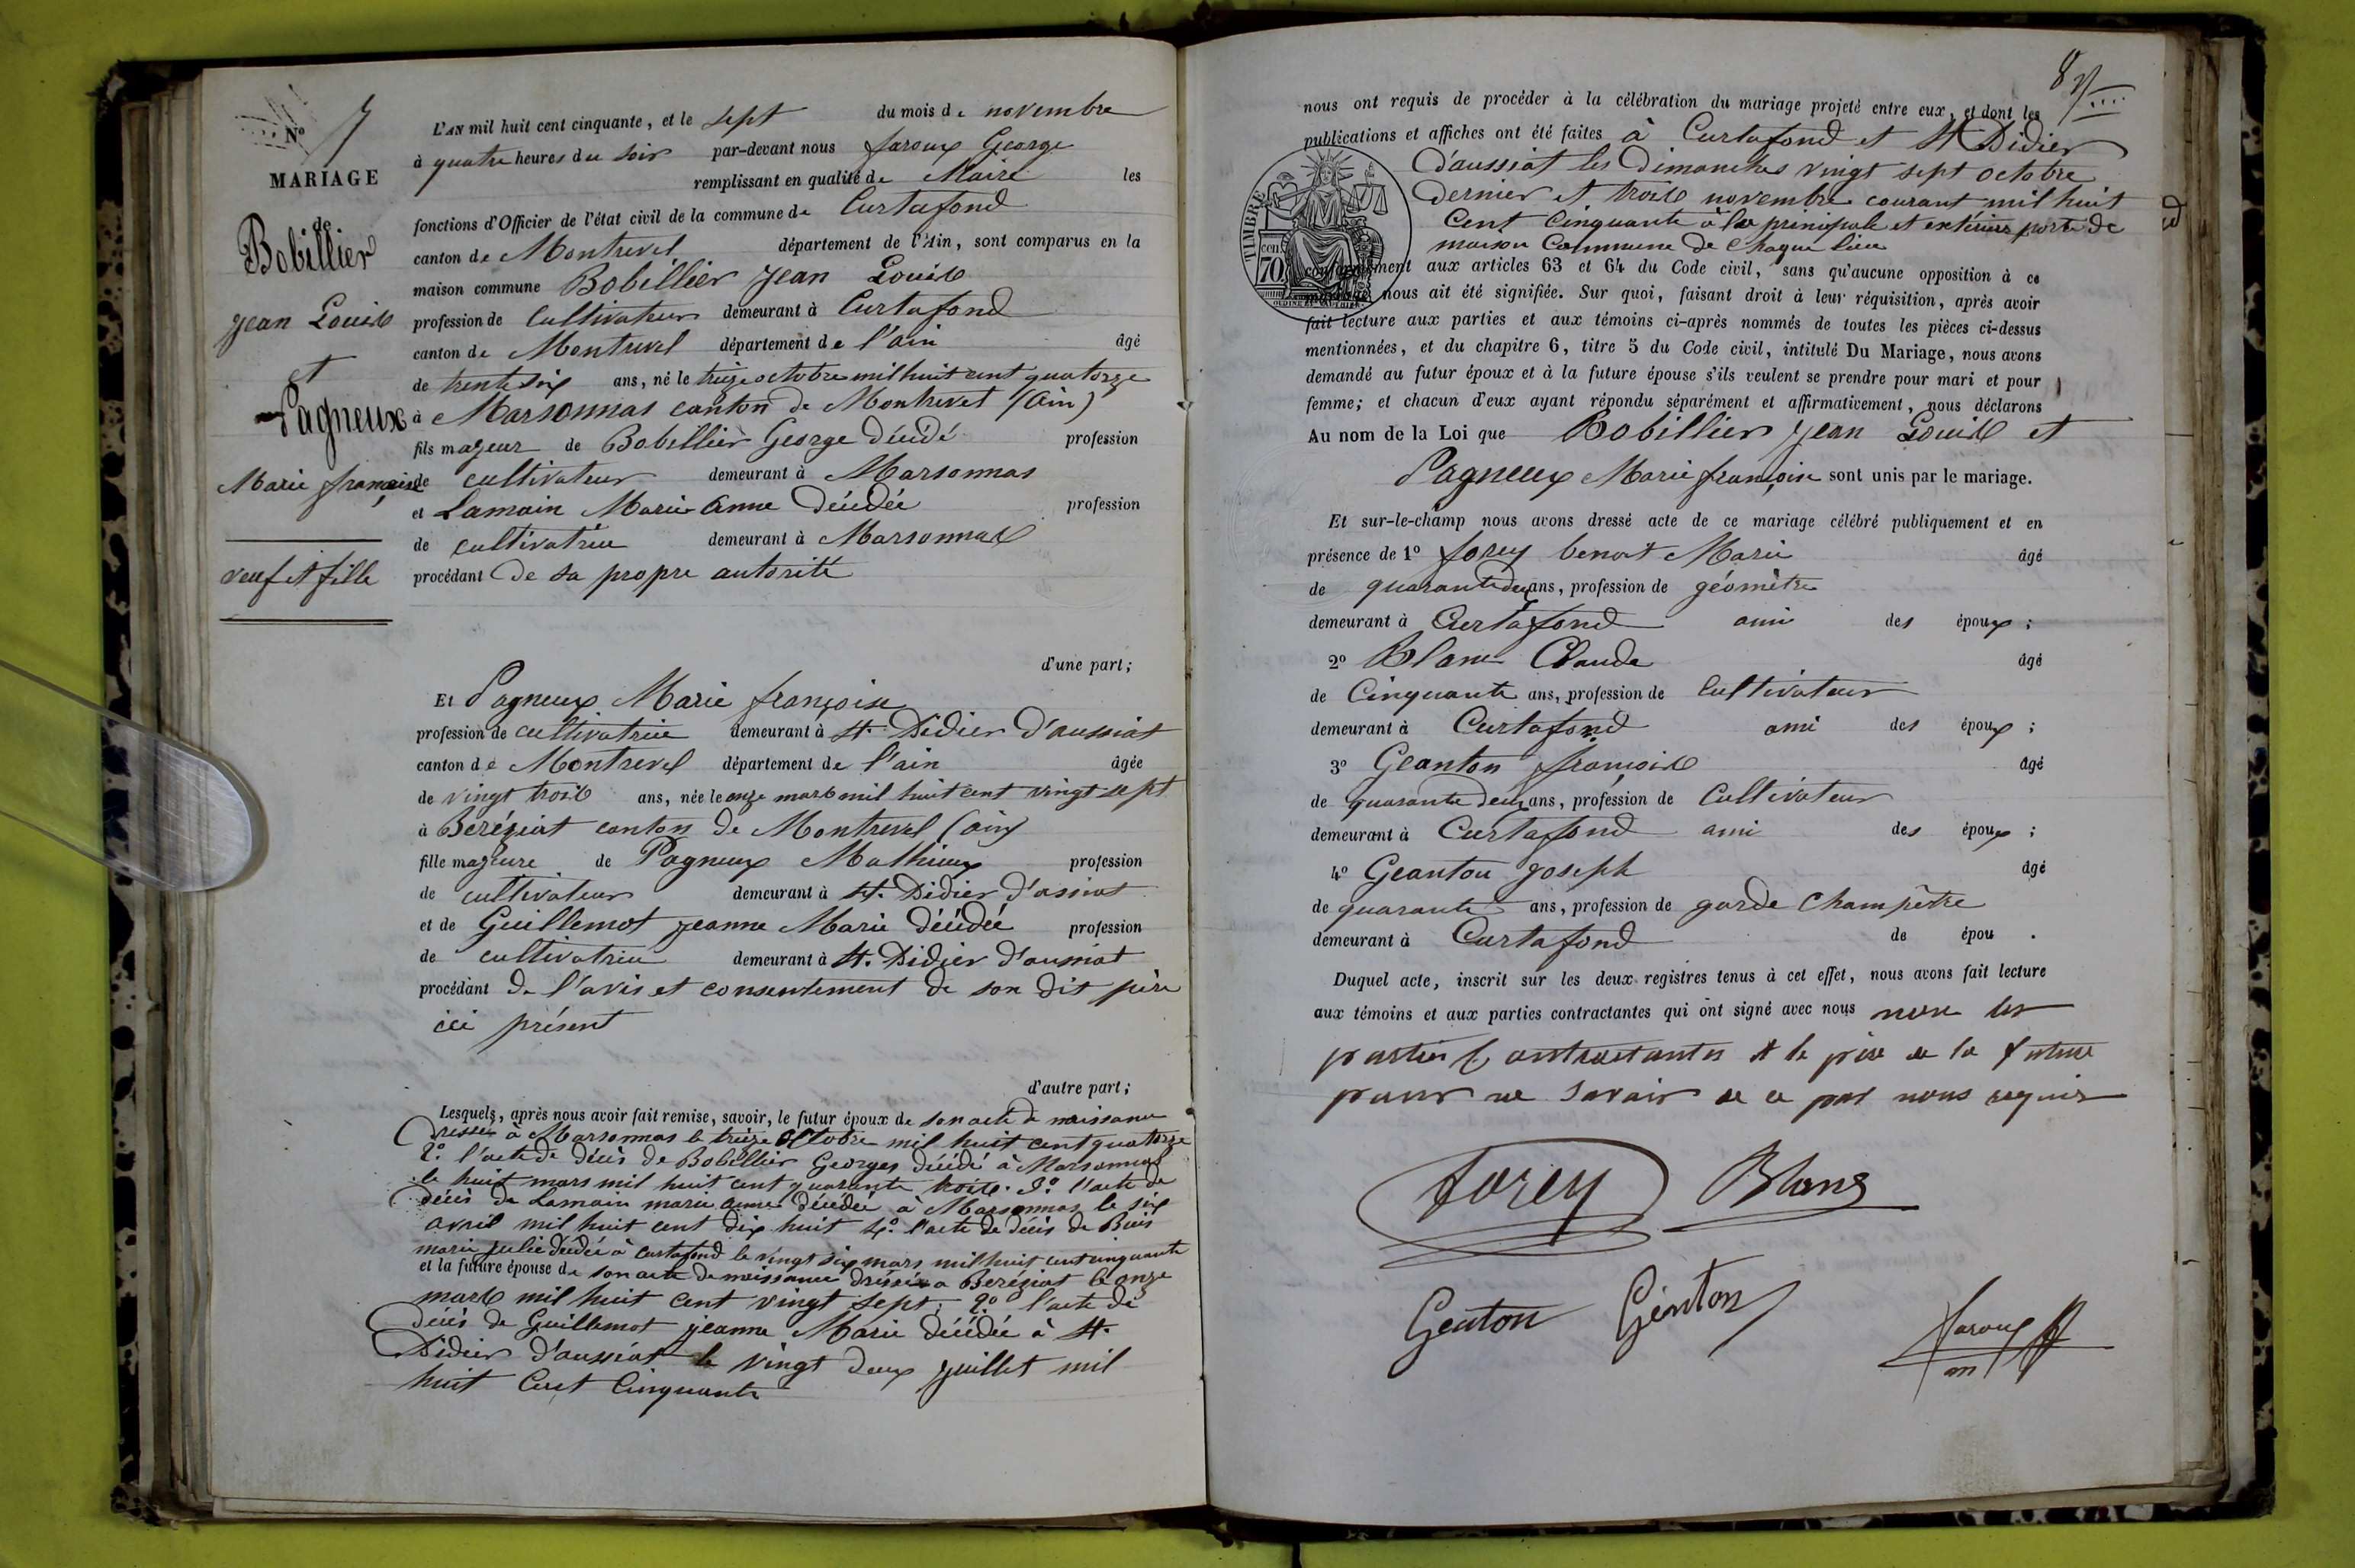 N° 7
MARIAGE
de
Bobillier
Jean Louis
et
Pagneux
Marie françoise
veuf et fille
L'AN mil huit cent cinquante, et le sept du mois de novembre
à quatre heures du soir par-devant nous faroux George
remplissant en qualité de Maire les
fonctions d'Officier de l'état civil de la commune de Curtafond
canton de Montrevel département de l'Ain, sont comparus en la
maison commune Bobillier Jean Louis
profession de cultivateur demeurant à Curtafond
canton de Montrevel département de l'ain âgé
de trente six ans, né le treize octobre mil huit cent quatorze
à Marsonnas canton de Montrevel (ain)
fils majeur de Bobillier George décédé profession
de cultivateur demeurant à Marsonnas
et Lamain Marie Anne décédée profession
de cultivatrice demeurant à Marsonnas
procédant de sa propre autorité
d'une part;
Et Pagneux Marie françoise
profession de cultivatrice demeurant à St. Didier d'aussiat
canton de Montrevel département de l'ain âgée
de vingt trois ans, née le onze mars mil huit cent vingt sept
à Beréziat canton de Montrevel (ain)
fille majeure de Pagneux Mathieux profession
de cultivateur demeurant à St. Didier d'assiat
et de Guillemot jeanne Marie décédée profession
de cultivatrice demeurant à St. Didier d'aussiat
procédant de l'avis et consentement de son dit père
ici présent
d'autre part;
Lesquels, après nous avoir fait remise, savoir, le futur époux de son acte de naissance
dressé à Marsonnas le treize octobre mil huit cent quatorze
2° l'acte de décès de Bobillier Georges décédé à Marsonnas
le huit mars mil huit cent quarante trois. 3° l'acte de
décès de Lamain marie anne décédée à Marsonnas le six
avril mil huit cent dix huit 4° l'acte de décès de Buis
marie julie décédée à curtafond le vingt six mars mil huit cent cinquante
et la future épouse de son acte de naissance dressé a Beréziat le onze
mars mil huit cent vingt sept; 2° l'acte de
décès de Guillemot jeanne Marie décédée à St.
Didier d'aussiat le vingt deux juillet mil
huit cent cinquante
8
nous ont requis de procéder à la célébration du mariage projeté entre eux, et dont les
publications et affiches ont été faites à Curtafond et St Didier
d'aussiat les dimanches vingt sept octobre
dernier et trois novembre courant mil huit
cent cinquante à la principale et extérieure porte de
maison Commune de chaque lieu
TIMBRE
cen
70
conformément aux articles 63 et 64 du Code civil, sans qu'aucune opposition à ce
mariage nous ait été signifiée. Sur quoi, faisant droit à leur réquisition, après avoir
fait lecture aux parties et aux témoins ci-après nommés de toutes les pièces ci-dessus
mentionnées, et du chapitre 6, titre 5 du Code civil, intitulé Du Mariage, nous avons
demandé au futur époux et à la future épouse s'ils veulent se prendre pour mari et pour
femme; et chacun d'eux ayant répondu séparément et affirmativement, nous déclarons
Au nom de la Loi que Bobillier Jean Louis et
Pagneux Marie françoise sont unis par le mariage.
Et sur-le-champ nous avons dressé acte de ce mariage célébré publiquement et en
présence de 1° forey benoit Marie âgé
de quarante deux ans, profession de géomètre
demeurant à Curtafond ami des époux;
2° Blanc Claude âgé
de Cinquante ans, profession de cultivateur
demeurant à Curtafond ami des époux;
3° Geanton françois âgé
de quarante deux ans, profession de Cultivateur
demeurant à Curtafond ami des époux;
4° Geanton Joseph âgé
de quarante ans, profession de garde champêtre
demeurant à Curtafond de épou .
Duquel acte, inscrit sur les deux registres tenus à cet effet, nous avons fait lecture
aux témoins et aux parties contractantes qui ont signé avec nous non les
parties Contractantes et le père de la future
pour ne savoir de ce par nous requis
forey Blanc
Genton Génton
faroux